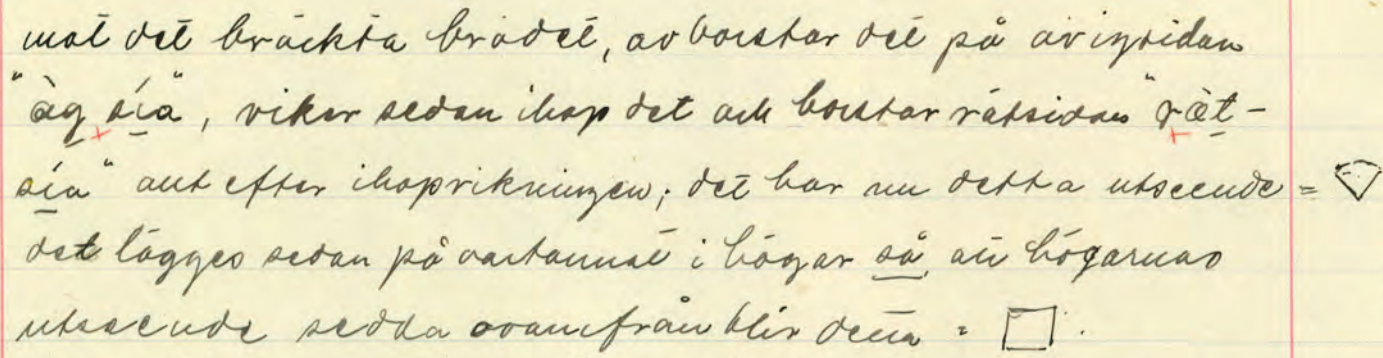 mot det bräckta brödet, avborstar det på avigsidan
"àg sía", viker sedan ihop det och borstar rätsidan "ræt-
sía" allt efter ihopvikningen; det har nu detta utseende =
det lägges sedan på vartannat i högar så, att högarnas
utseende sedda ovanifrån blir detta = .